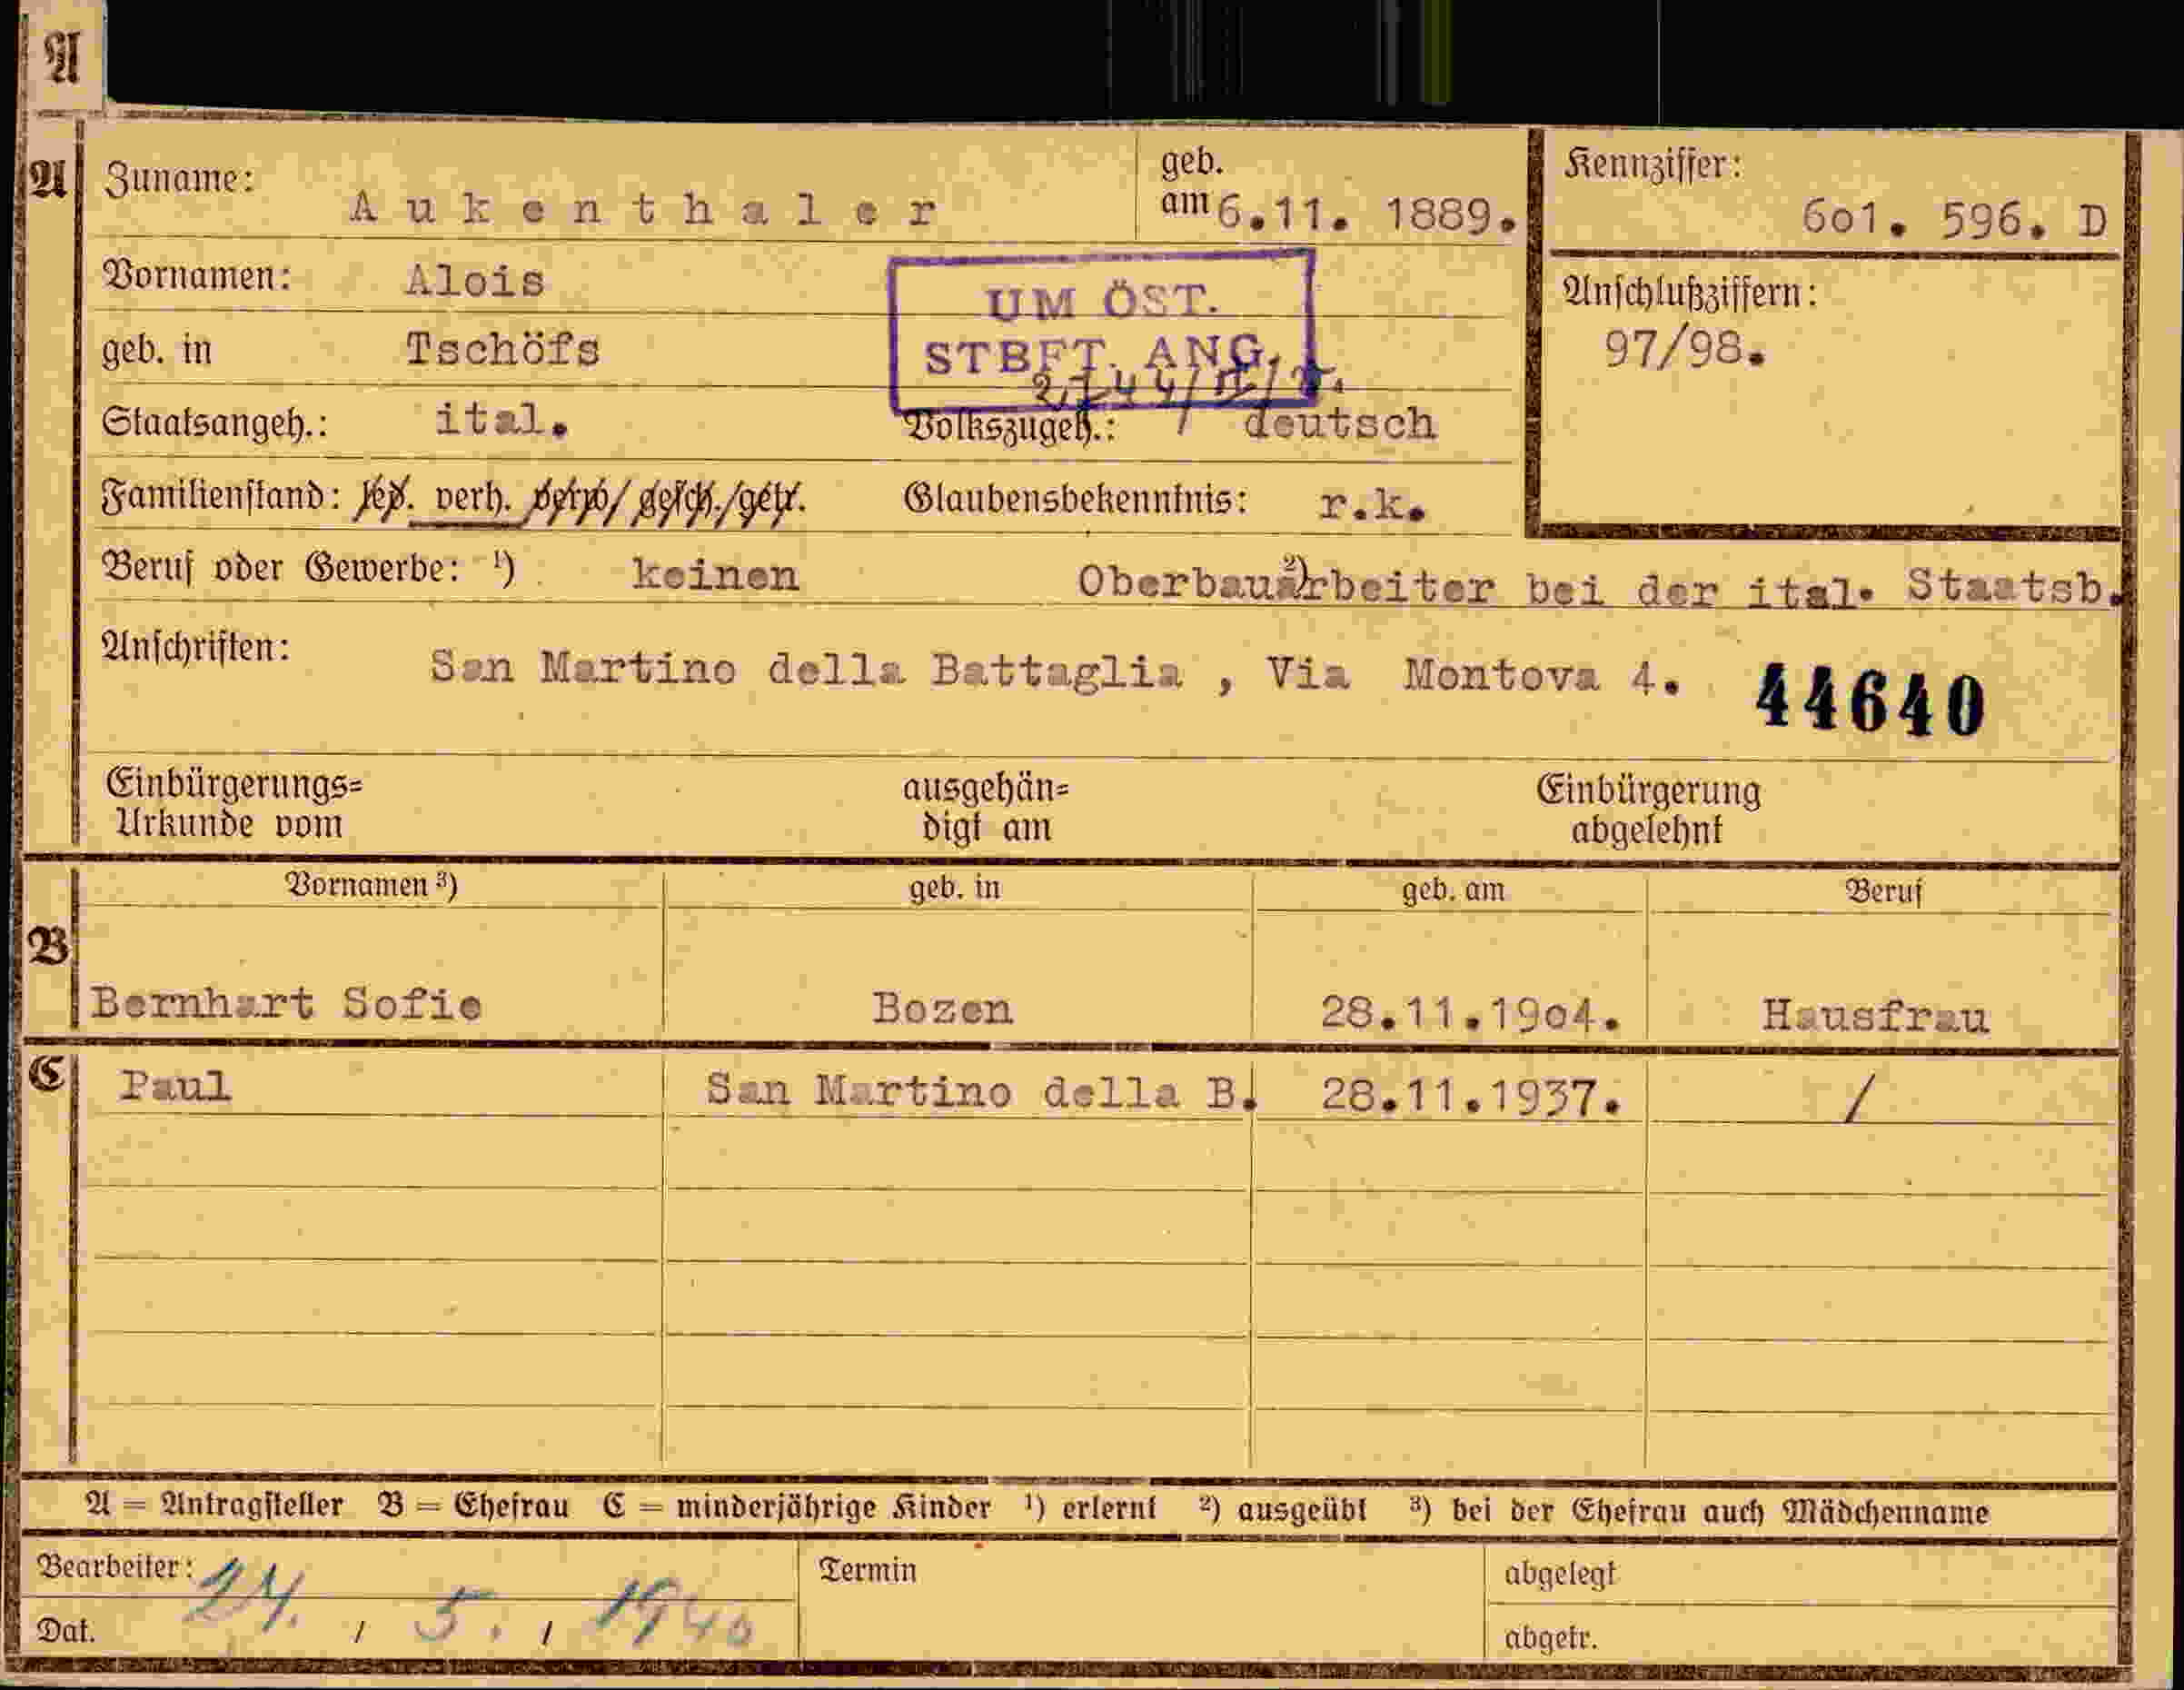 A
A Zuname: Aukenthaler geb. am 6.11. 1889. Kennziffer: 6o1. 596. D
Vornamen: Alois UM ÖST. Anschlußziffern:
geb. in Tschöfs STBFT. ANG. 97/98.
Staatsangeh.: ital. Volkszugeh.: deutsch
Familienstand: led. verh. verw/ gesch./getr. Glaubensbekenntnis: r.k.
Beruf oder Gewerbe: ¹) keinen ²) Oberbauarbeiter bei der ital. Staatsb.
Anschriften: San Martino della Battaglia , Via Montova 4. 44640
Einbürgerungs= ausgehän= Einbürgerung
Urkunde vom digt am abgelehnt
Vornamen ³) geb. in geb. am Beruf
B
Bernhart Sofie Bozen 28.11.19o4. Hausfrau
C Paul San Martino della B. 28.11.1937. /
A = Antragsteller B = Ehefrau C = minderjährige Kinder ¹) erlernt ²) ausgeübt ³) bei der Ehefrau auch Mädchenname
Bearbeiter: Termin abgelegt
Dat. 24. / 5. / 1940 abgetr.